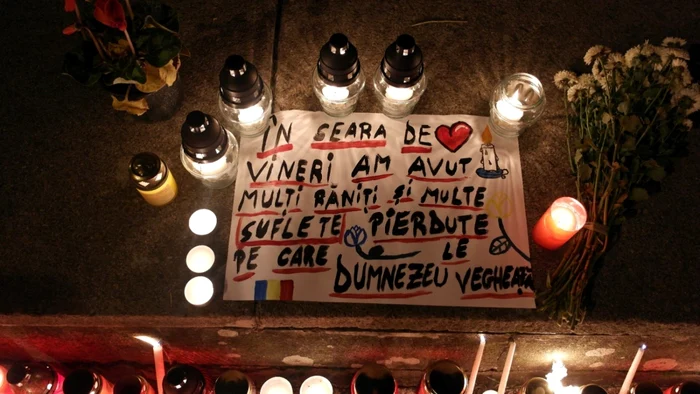 ÎN SEARA DE
VINERI AM AVUT
MULȚI RĂNIȚI ȘI MULTE
SUFLETE PIERDUTE
PE CARE LE
DUMNEZEU VEGHEAȚĂ